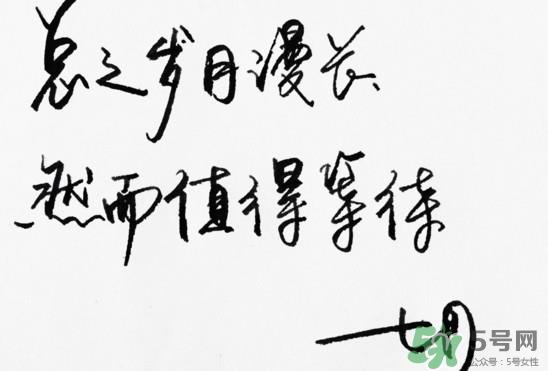 总之岁月漫长
然而值得等待
七月
5号网
公众号:5号女性